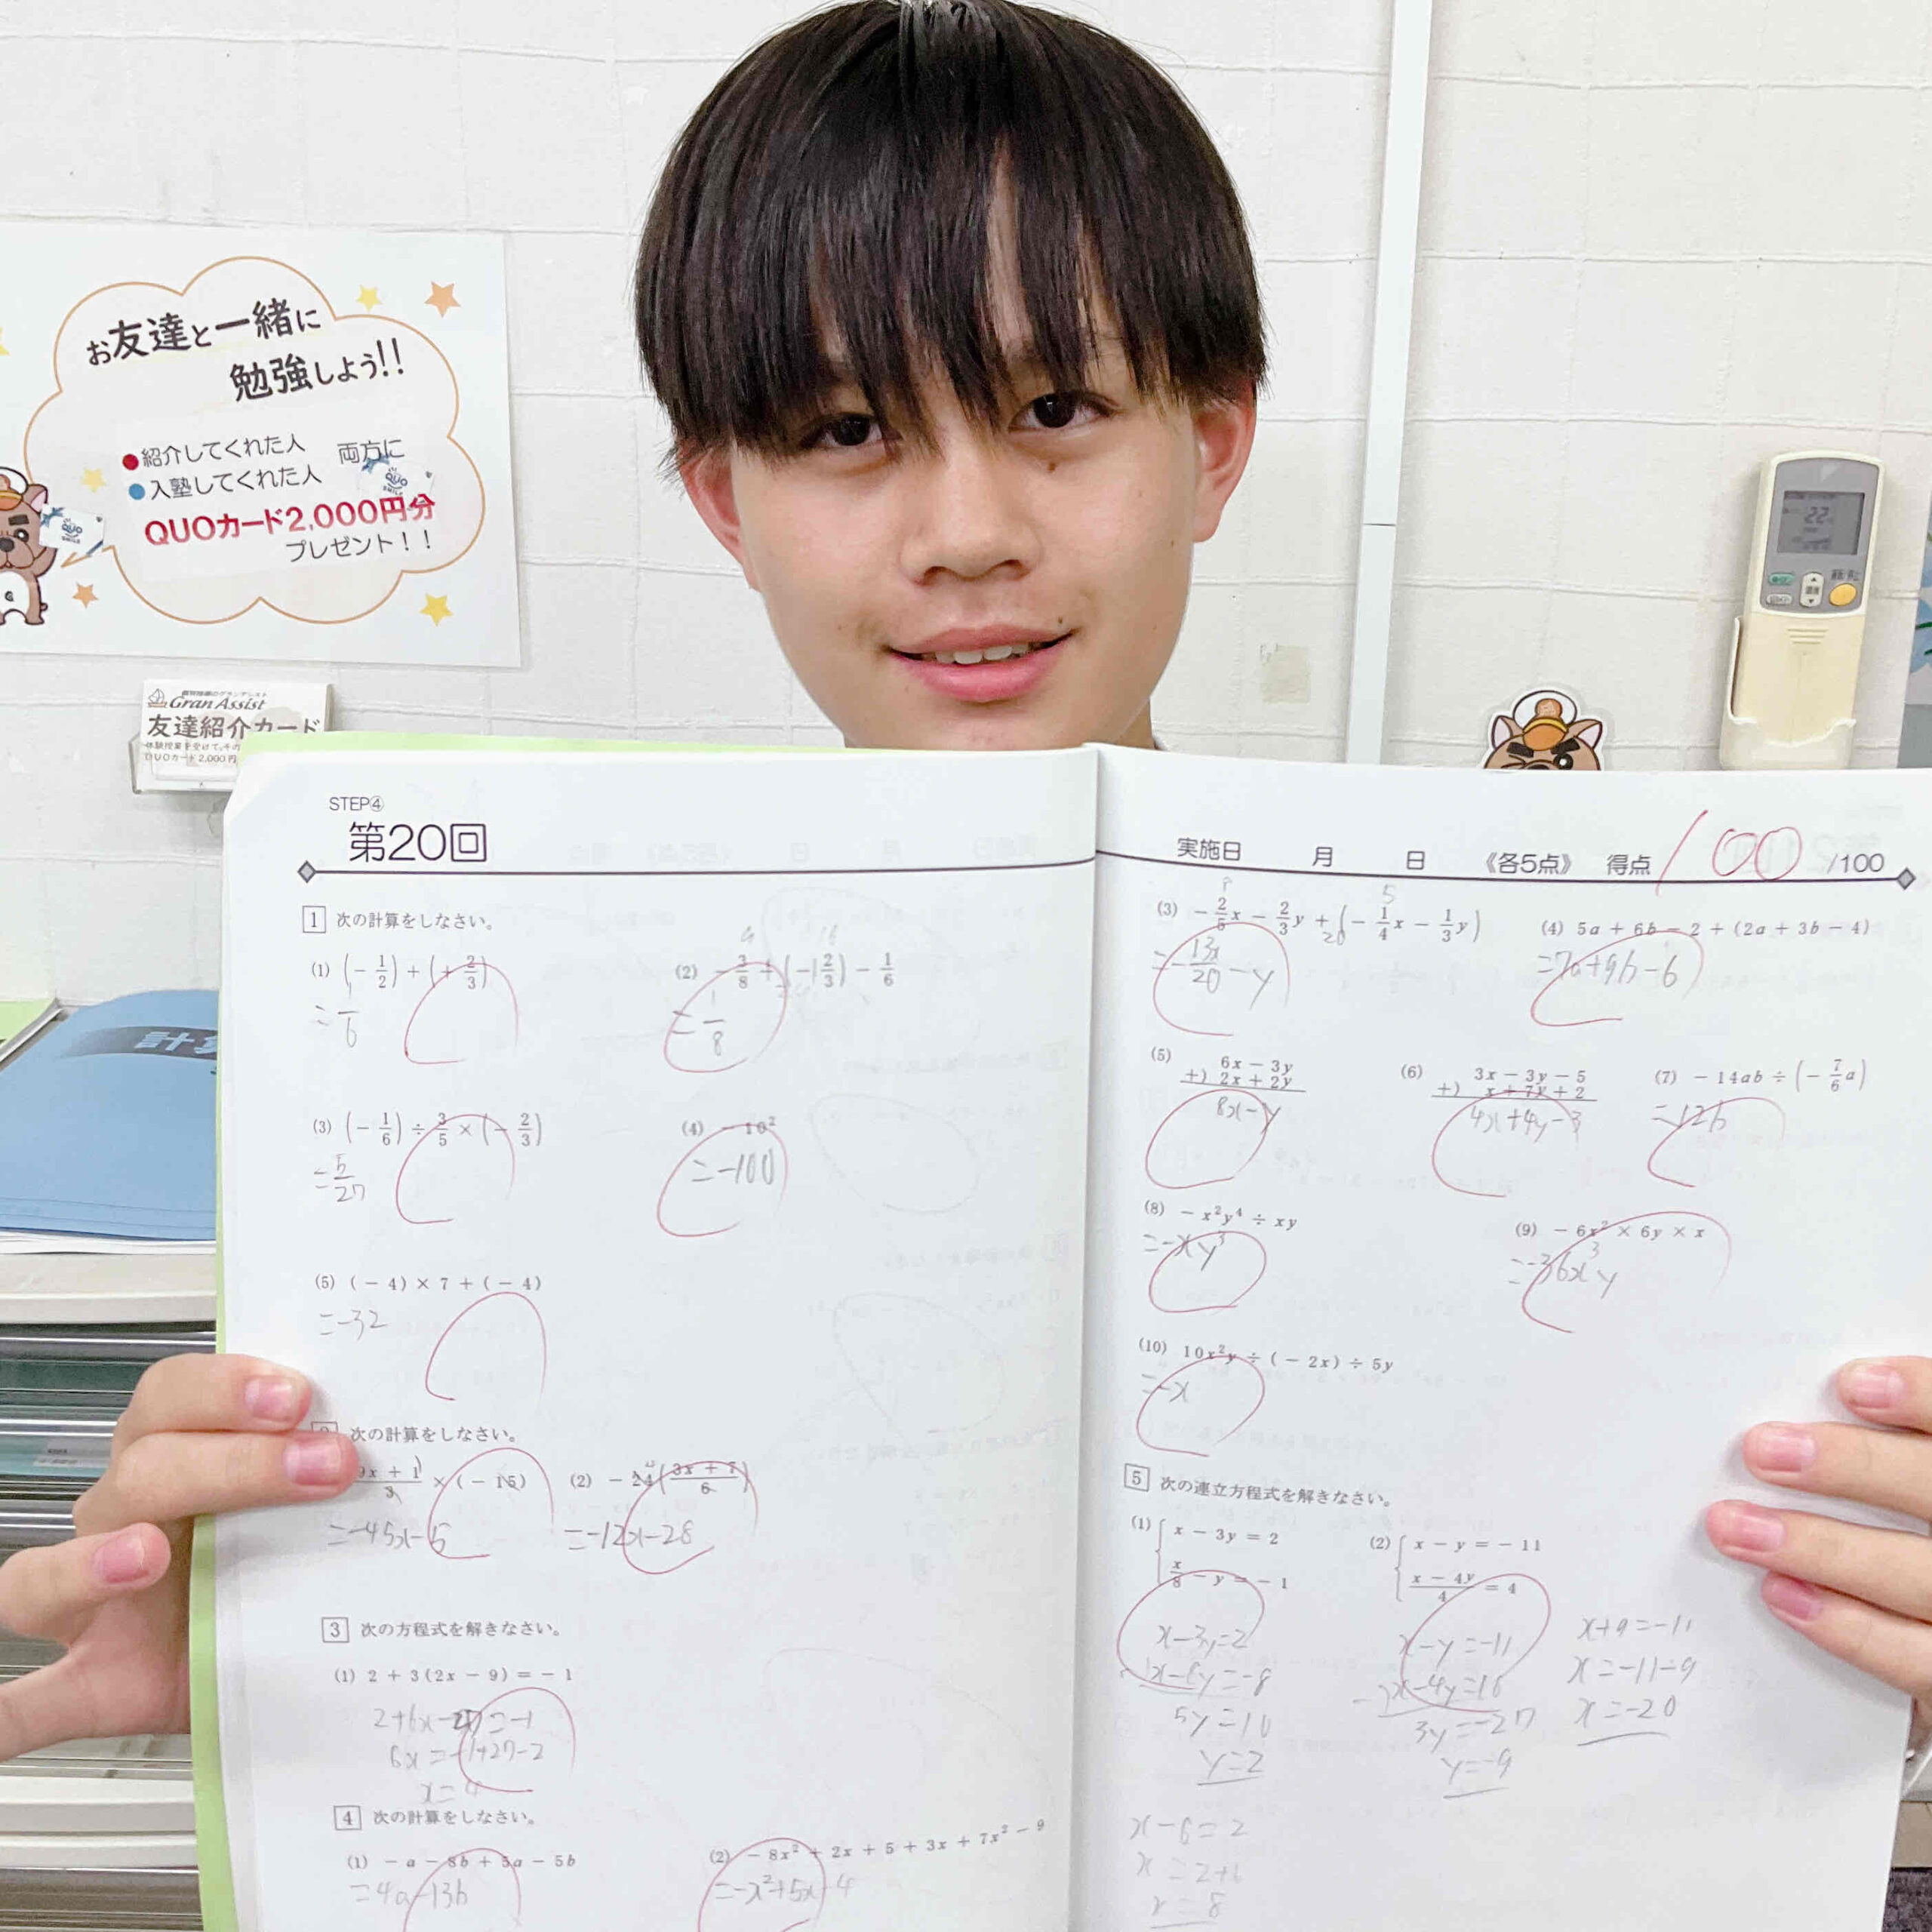 お友達と一緒に
勉強しよう!!
●紹介してくれた人
●入塾してくれた人
両方に
QUO
QUOカード2,000円分
プレゼント！！
Gran Assist
友達紹介カード
QUOカード2,000円
22
計
STEP④
第20回
実施日 月 日 《各5点》 得点 100 /100
1 次の計算をしなさい。
(1) (− 1/2) + (+ 2/3)
= 1/6
(2) − 3/8 + (−1 2/3) − 1/6
9 16
= 1/8
(3) (− 1/6) ÷ 3/5 × (− 2/3)
= 5/27
(4) − 10²
= −100
(5) (− 4) × 7 + (− 4)
= −32
次の計算をしなさい。
9x + 1/3 × (− 15)
= −45x − 5
(2) − 24 (3x + 7/6)
= −12x − 28
3 次の方程式を解きなさい。
(1) 2 + 3(2x − 9) = − 1
2+6x−27=−1
6x=−1+27−2
x=4
4 次の計算をしなさい。
(1) − a − 8b + 5a − 5b
=4a−13b
(2) − 8x² + 2x + 5 + 3x + 7x² − 9
=−x²+5x−4
(3) − 2/5 x − 2/3 y + (− 1/4 x − 1/3 y)
8 5
20
= − 13x/20 − y
(4) 5a + 6b − 2 + (2a + 3b − 4)
=7a+9b−6
(5) 6x − 3y
+) 2x + 2y
8x−y
(6) 3x − 3y − 5
+) x + 7y + 2
4x+4y−3
(7) − 14ab ÷ (− 7/6 a)
=12b
(8) − x²y⁴ ÷ xy
=−xy³
(9) − 6x² × 6y × x
=−36x³y
(10) 10x²y ÷ (− 2x) ÷ 5y
=−x
5 次の連立方程式を解きなさい。
(1) x − 3y = 2
x/8 − y = − 1
x−3y=2
x−8y=−8
5y=10
y=2
x−6=2
x=2+6
x=8
(2) x − y = − 11
x − 4y/4 = 4
x−y=−11
−)x−4y=16
3y=−27
y=−9
x+9=−11
x=−11−9
x=−20